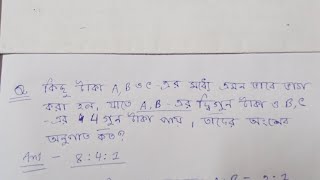 Q. কিছু টাকা A, B ও C -এর মধ্যে এমন ভাবে ভাগ
করা হল, যাতে A, B-এর দ্বিগুন টাকা ও B, C
-এর 4 গুন টাকা পায়, তাদের অংশের
অনুপাত কত?
Ans - 8:4:1